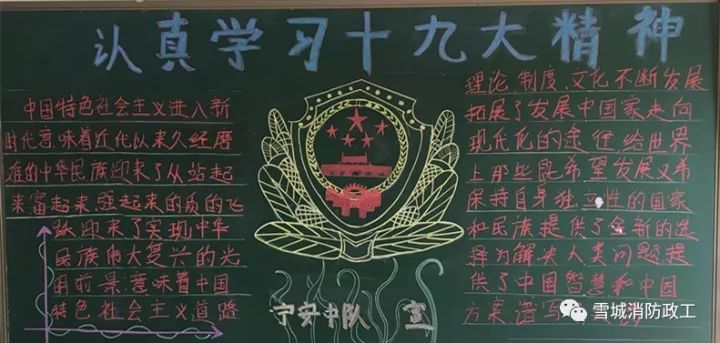 认真学习十九大精神
中国特色社会主义进入新
时代意味着近代以来久经磨
难的中华民族迎来了从站起
来富起来,强起来的质的飞
跃迎来了实现中华
民族伟大复兴的光
明前景,意味着中国
特色社会主义道路
理论、制度、文化、不断发展
拓展了发展中国家走向
现代化的途径给世界
上那些既希望发展又希
保持自身独立性的国家
和民族提供了全新的选
择为解决人类问题提
供了中国智慧和中国
方案 谱写
宁安中队 宣
雪城消防政工